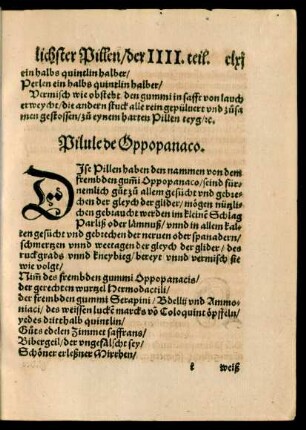 lichster Pillen/der IIII. teil. clxj
ein halbs quintlin halber/
Perlen ein halbs quintlin halber/
Vermisch wie obsteht den gummi in safft von lauch
erweycht/die andern stuck alle rein gepülvert vnd zůsa
men gestossen/zu eynem harten Pillen teyg/ꝛc.
Pilule de Oppopanaco.
DIse Pillen haben den nammen von dem
frembden gum̃i Oppopanaco/seind für⸗
nemlich gůt zů allem gesücht vnd gebre⸗
chen der gleych der glider/mögen nützli⸗
chen gebraucht werden im kleinẽ Schlag
Parliß oder Lämnuß/vnnd in allem kal⸗
ten gesücht vnd gebrechen der neruen oder spanadern/
schmertzen vnnd wettagen der gleych der glider/des
ruckgrads vnnd kneybieg/bereyt vnnd vermisch sie
wie volgt/
Nim̃ des frembden gummi Oppopanacis/
der gerechten wurtzel Hermodactili/
der frembden gummi Serapini/Bdellij vnd Ammo⸗
niaci/des weissen luckẽ marcks võ Coloquint öpffeln/
yedes dritthalb quintlin/
Gůts edelen Zimmet saffrans/
Bibergeil/der vngefälscht sey/
Schöner erleßner Mirrhen/
weiß